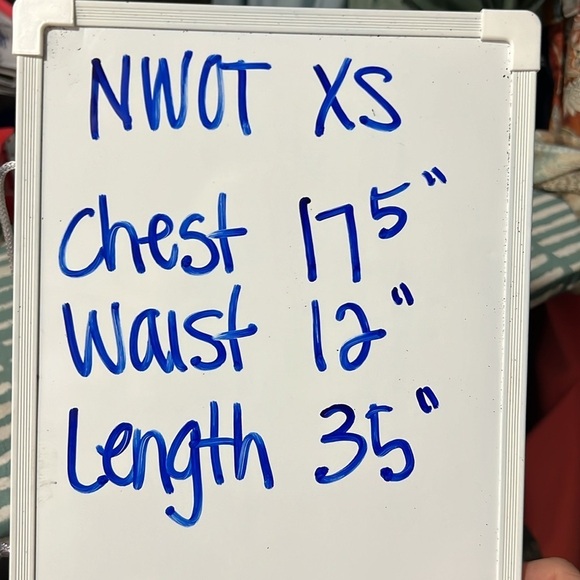 NWOT XS
Chest 17 5"
Waist 12"
Length 35"